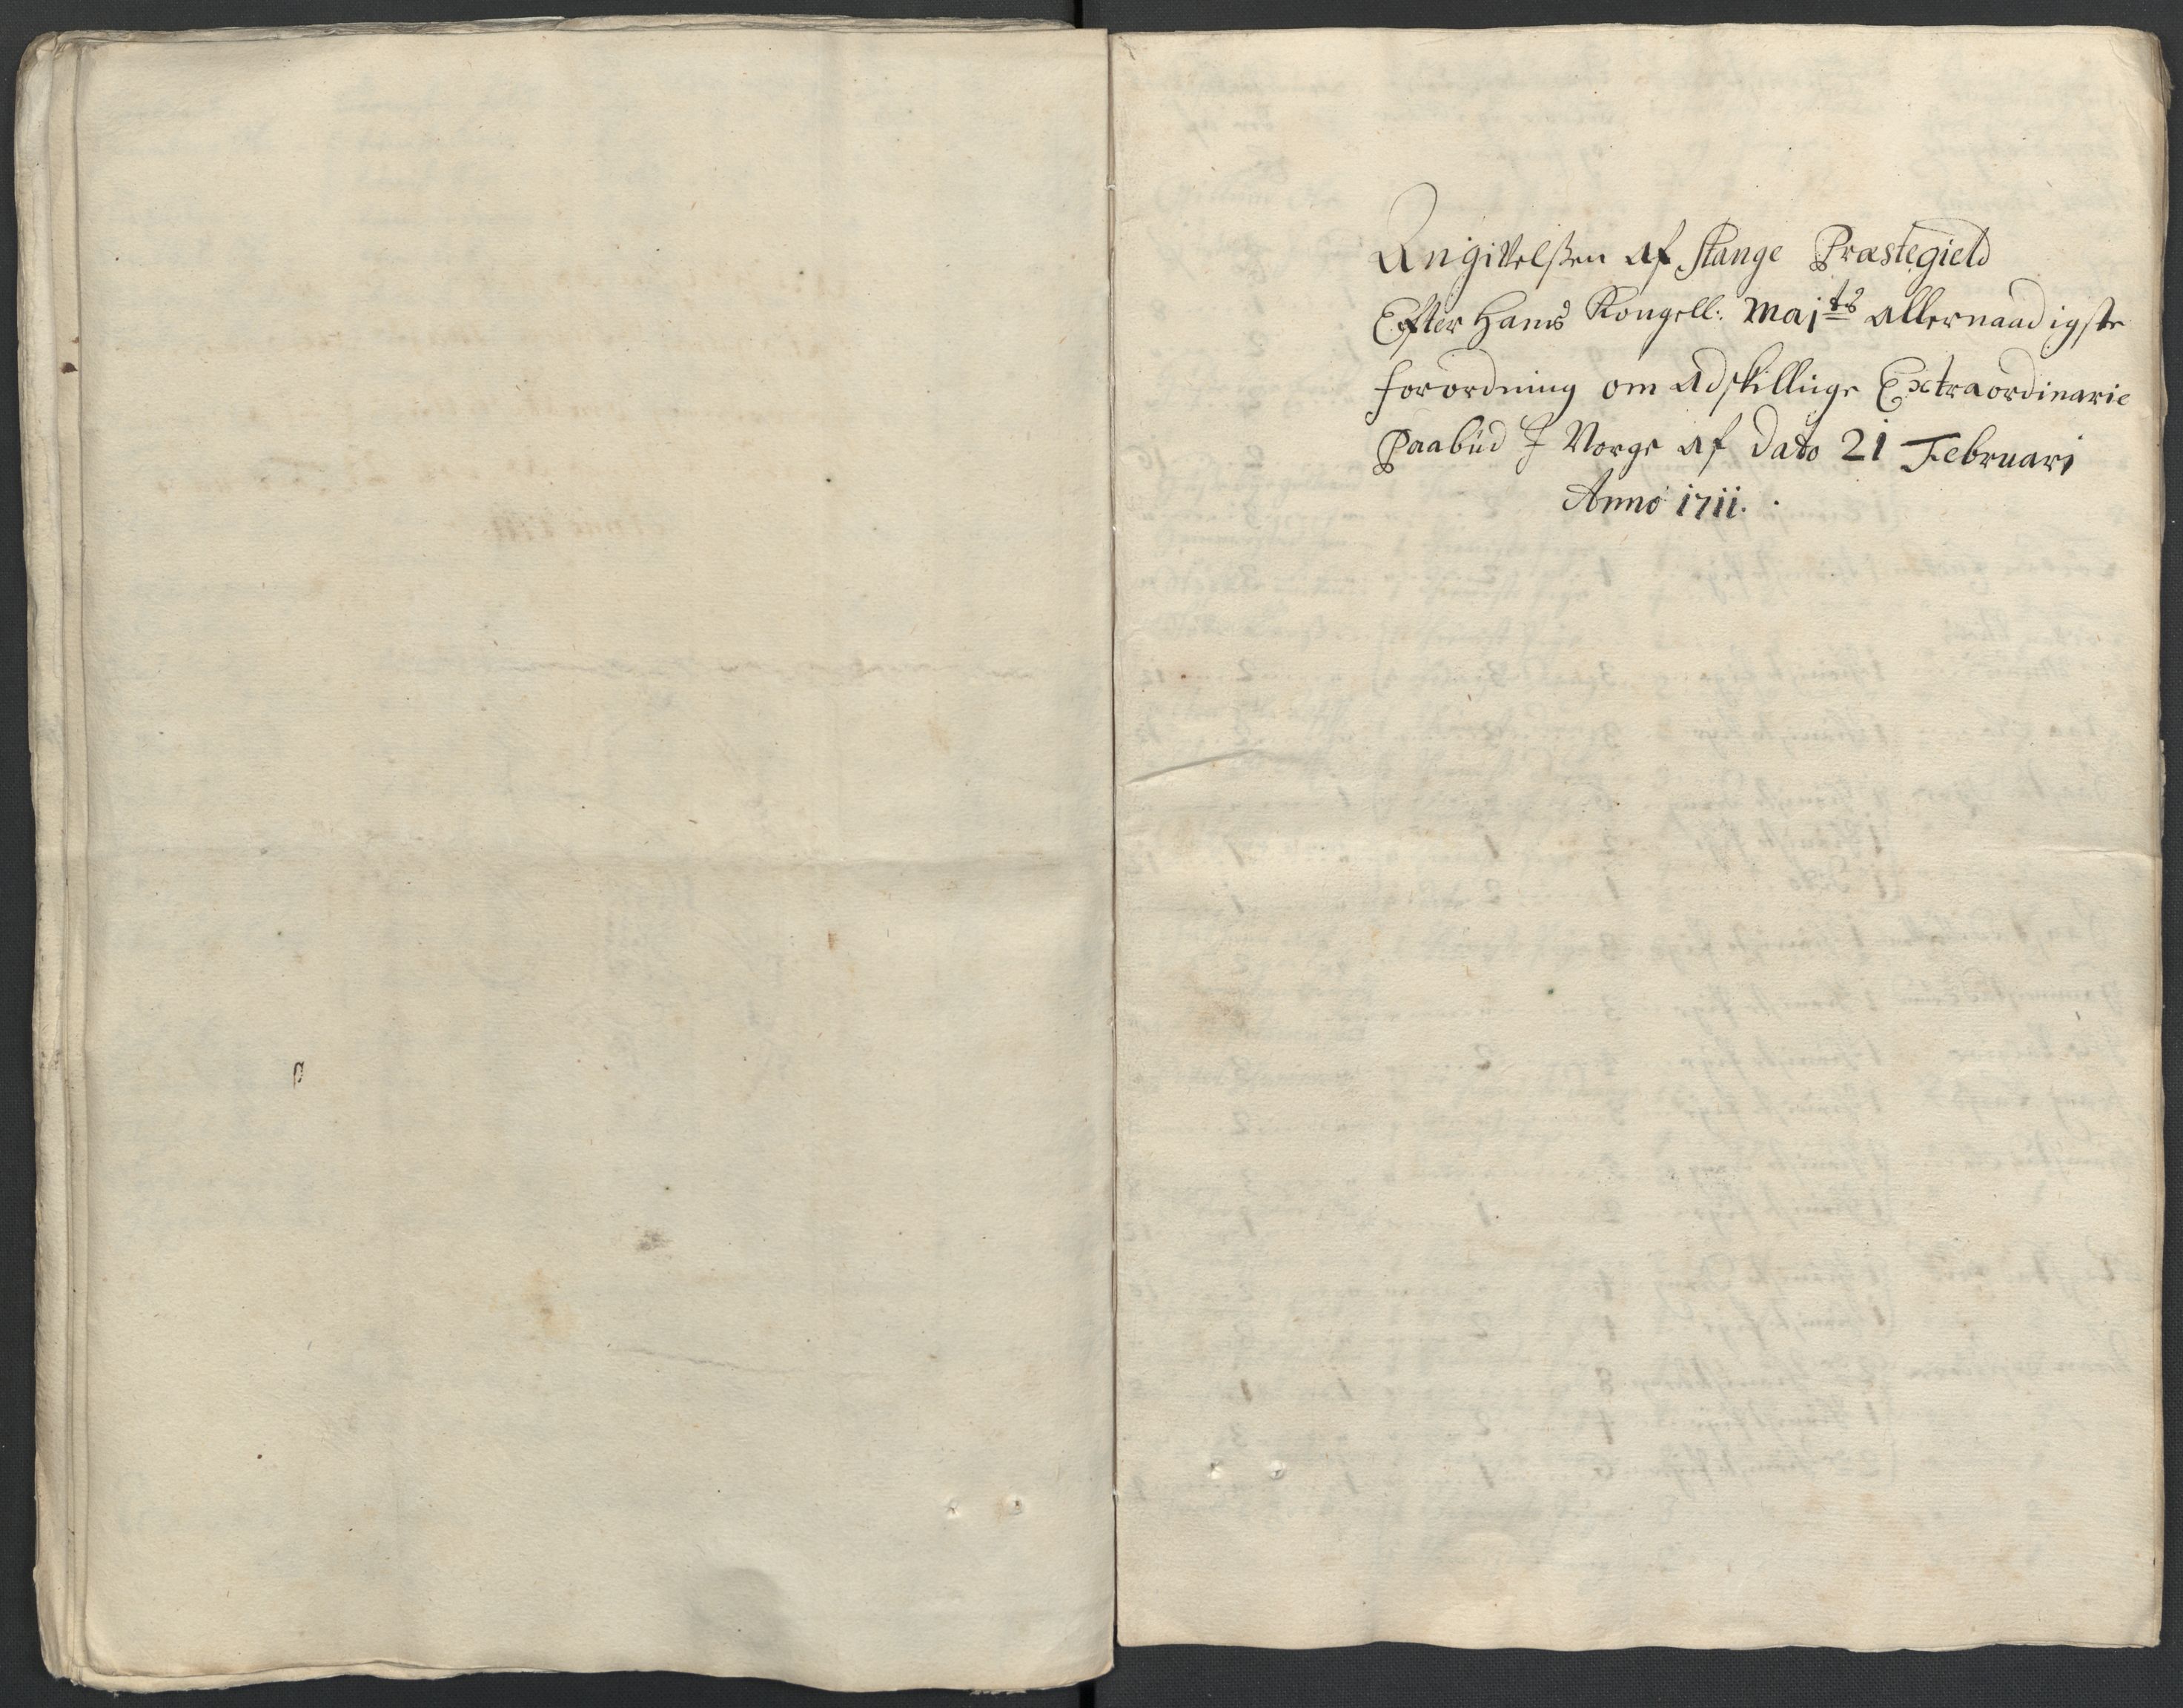 Angivelßen af Stange Præstegield
Efter Hans Kongell: Maj:ts allernaadigste
forordning om adskillige Extraordinarie
Paabud J Norge af dato 21 Februari
Anno 1711.